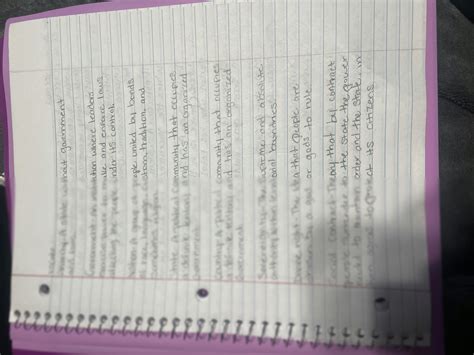 Anarchy: A state without government
and laws
Government: An institution where leaders
use power to make and enforce laws
affecting the people under its control.
Nation: A group of people united by bonds
of race, language, custom, tradition, and
sometimes religion
State: A political community that occupies
a definite territory and has an organized
government.
Country: A political community that occupies
a definite territory and has an organized
government
Sovereignty: The supreme and absolute
authority within territorial boundaries
Divine right: The idea that people are
by a god or gods to rule
Social Contract: Theory that by contract
people surrender to the state the power
needed to maintain order and the state, in
turn to protect its citizens